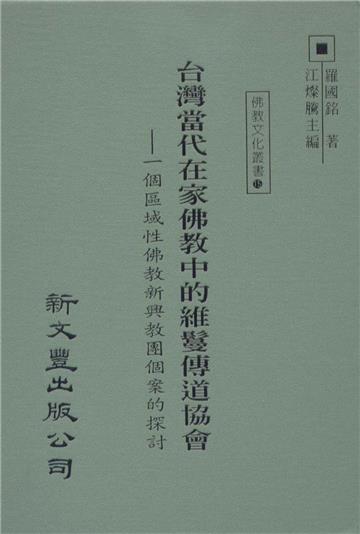 羅國銘 著
江燦騰主編
佛教文化叢書⑮
台灣當代在家佛教中的維鬘傳道協會
——一個區域性佛教新興教團個案的探討
新文豐出版公司